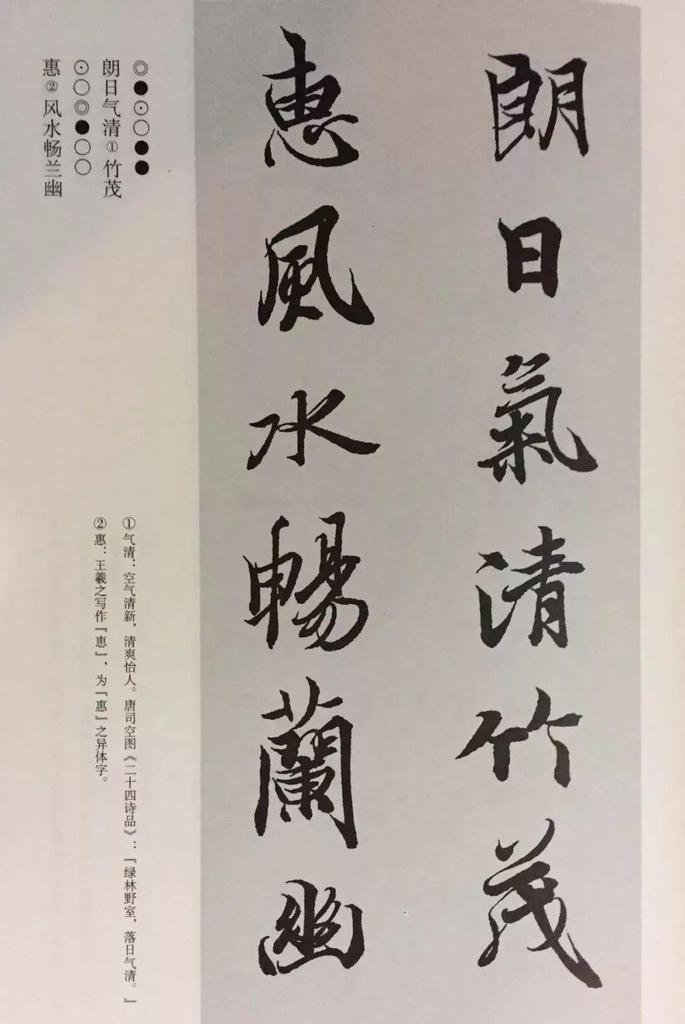 朗日氣清竹茂
惠風水暢蘭幽
◎●⊙○●●
朗日气清①竹茂
⊙○◎●○○
惠②风水畅兰幽
①气清：空气清新，清爽怡人。唐司空图《二十四诗品》：「绿林野室，落日气清。」
②惠：王羲之写作「恵」，为「惠」之异体字。